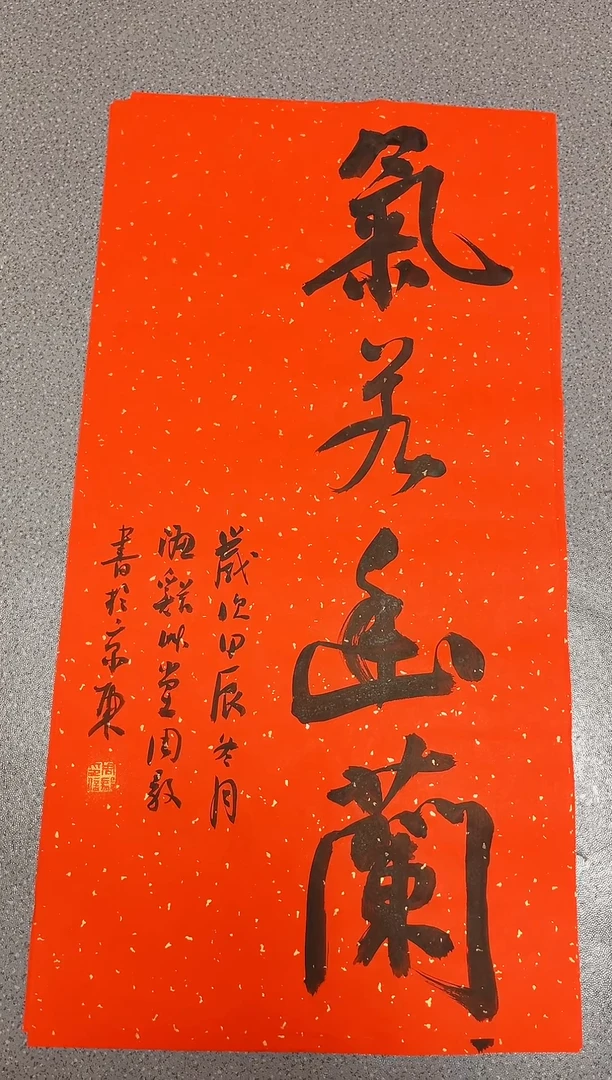 氣若幽蘭
歲次甲辰冬月
濂谿 堂周敦
書於京東